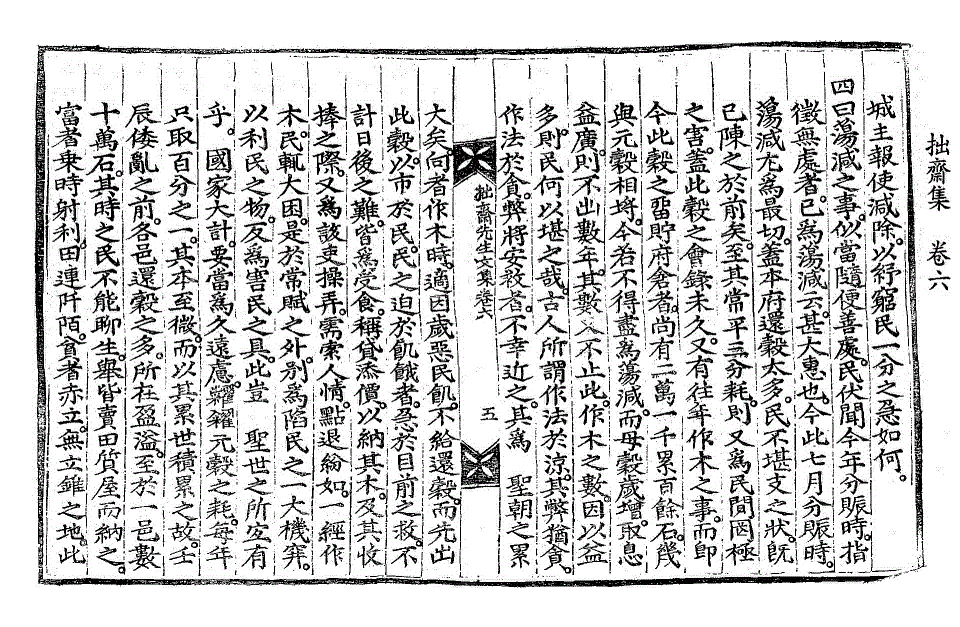 拙齋集　卷六
城主報使減除。以紓窮民一分之急如何。
四曰蕩減之事。似當隨便善處。民伏聞今年分賑時。指
徵無處者。已爲蕩減云。甚大惠也。今此七月分賑時。
蕩減尤爲最切。蓋本府還穀太多。民不堪支之狀。旣
已陳之於前矣。至其常平三分耗。則又爲民間罔極
之害。蓋此穀之會錄未久。又有往年作木之事。而卽
今此穀之留貯府倉者。尙有二萬一千累百餘石。幾
與元穀相埒。今若不得盡爲蕩減。而母穀歲增。取息
益廣。則不出數年。其數又不止此。作木之數。因以益
多。則民何以堪之哉。古人所謂作法於涼。其弊猶貪。
作法於貪。弊將安救者。不幸近之。其爲　聖朝之累
拙齋先生文集卷六　五
大矣。向者作木時。適因歲惡民飢。不給還穀。而先出
此穀。以市於民。民之迫於飢餓者。急於目前之救。不
計日後之難。皆爲受食。稱貸添價。以納其木。及其收
捧之際。又爲該吏操弄。需索人情。點退紛如。一經作
木。民輒大困。是於常賦之外。別爲陷民之一大機穽。
以利民之物。反爲害民之具。此豈　聖世之所宜有
乎。國家大計。要當爲久遠慮。糶糴元穀之耗。每年
只取百分之一。其本至微。而以其累世積累之故。壬
辰倭亂之前。各邑還穀之多。所在盈溢。至於一邑數
十萬石。其時之民不能聊生。擧皆賣田質屋而納之。
富者乘時射利。田連阡陌。貧者赤立。無立錐之地。此